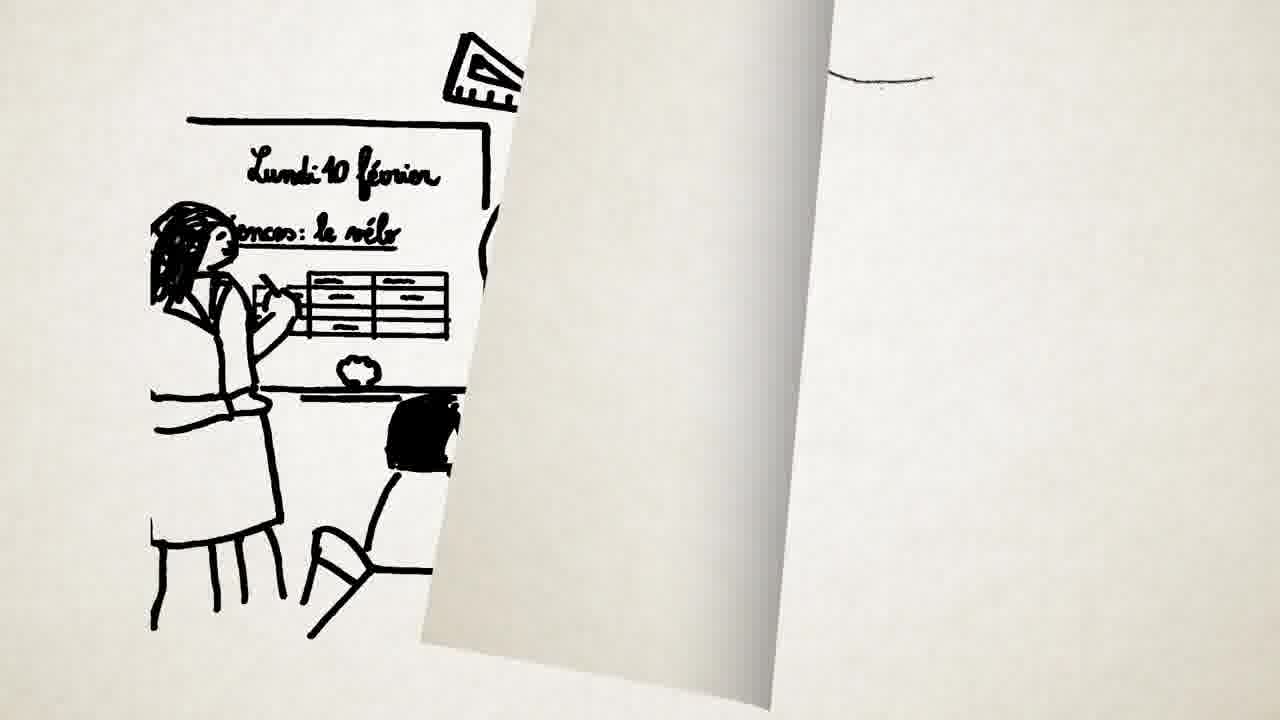 Lundi 10 février
iences: le vélo